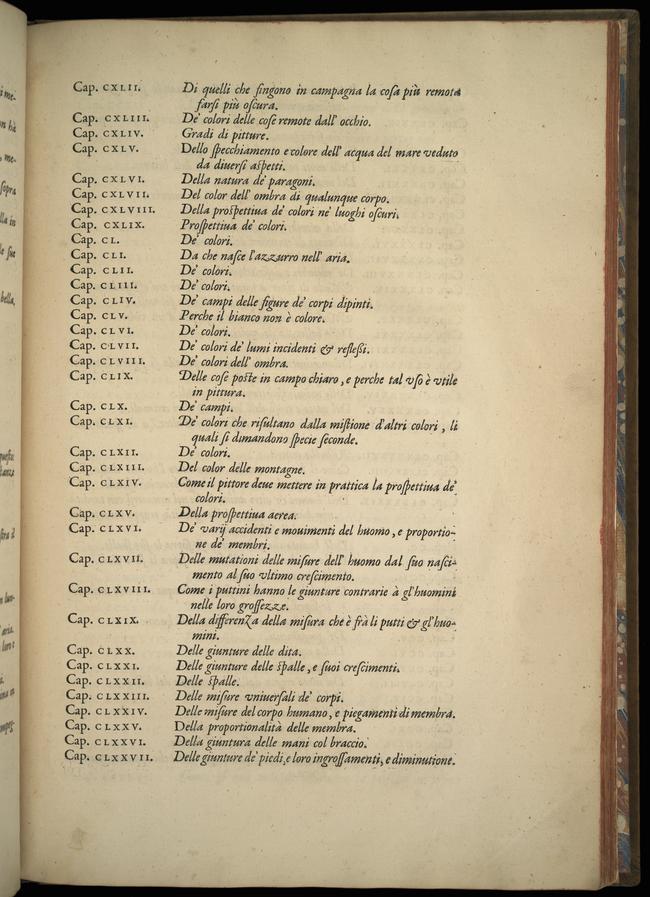 Cap. CXLII. Di quelli che fingono in campagna la cosa più remota
farsi più oscura.
Cap. CXLIII. De' colori delle cose remote dall' occhio.
Cap. CXLIV. Gradi di pitture.
Cap. CXLV. Dello specchiamento e colore dell' acqua del mare veduto
da diversi aspetti.
Cap. CXLVI. Della natura de' paragoni.
Cap. CXLVII. Del color dell' ombra di qualunque corpo.
Cap. CXLVIII. Della prospettiua de' colori ne' luoghi oscuri.
Cap. CXLIX. Prospettiua de' colori.
Cap. CL. De' colori.
Cap. CLI. Da che nasce l'azzurro nell' aria.
Cap. CLII. De' colori.
Cap. CLIII. De' colori.
Cap. CLIV. De' campi delle figure de' corpi dipinti.
Cap. CLV. Perche il bianco non è colore.
Cap. CLVI. De' colori.
Cap. CLVII. De' colori de' lumi incidenti & reflessi.
Cap. CLVIII. De' colori dell' ombra.
Cap. CLIX. Delle cose poste in campo chiaro, e perche tal vso è vtile
in pittura.
Cap. CLX. De' campi.
Cap. CLXI. De' colori che risultano dalla mistione d'altri colori, li
quali si dimandono specie seconde.
Cap. CLXII. De' colori.
Cap. CLXIII. Del color delle montagne.
Cap. CLXIV. Come il pittore deue mettere in prattica la prospettiua de'
colori.
Cap. CLXV. Della prospettiua aerea.
Cap. CLXVI. De' varij accidenti e mouimenti del huomo, e proportio-
ne de' membri.
Cap. CLXVII. Delle mutationi delle misure dell' huomo dal suo nasci-
mento al suo vltimo crescimento.
Cap. CLXVIII. Come i puttini hanno le giunture contrarie à gl'huomini
nelle loro grossezze.
Cap. CLXIX. Della differenza della misura che è frà li putti & gl'huo-
mini.
Cap. CLXX. Delle giunture delle dita.
Cap. CLXXI. Delle giunture delle spalle, e suoi crescimenti.
Cap. CLXXII. Delle spalle.
Cap. CLXXIII. Delle misure vniuersali de' corpi.
Cap. CLXXIV. Delle misure del corpo humano, e piegamenti di membra.
Cap. CLXXV. Della proportionalità delle membra.
Cap. CLXXVI. Della giuntura delle mani col braccio.
Cap. CLXXVII. Delle giunture de' piedi, e loro ingrossamenti, e diminutione.